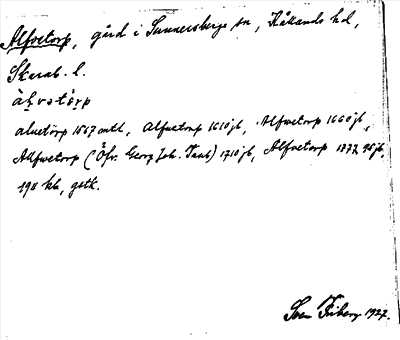 Alfvetorp, gård i Sunnersbergs sn, Kållands hd,
Skarab. l.
alvetörp 1567 mtl, Alfvetorp 1610 jb, Alfwetorp 1660 jb,
Allfwetorp (Öfv. Georg Joh. Taub) 1710 jb, Alfvetorp 1877, 95 jb,
1911 kb, gstk.
Sven Friberg 1927.